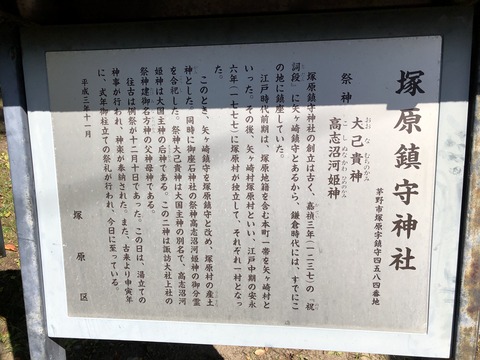 塚原鎮守神社
茅野市塚原字鎮守四五八四番地
祭神
大己貴神
おおなむちのかみ
高志沼河姫神
こしぬなかわひめのかみ
塚原鎮守神社の創立は古く、嘉禎三年(一二三七)の「祝
詞段」に矢ヶ崎鎮守とあるから、鎌倉時代には、すでにこ
の地に鎮座していた。
江戸時代前期は、塚原地籍を含む本町一帯を矢ヶ崎村と
いった。その後、矢ヶ崎村塚原村といい、江戸中期の安永
六年(一七七七)に塚原村が独立して、それぞれ一村となっ
た。
このとき、矢ヶ崎鎮守を塚原鎮守と改め、塚原村の産土
神とした。同時に御座石神社の祭神高志沼河姫神の御分霊
を合祀した。祭神大己貴神は大国主神の別名で、高志沼河
姫神は大国主神の后神である。この二神は諏訪大社上社の
祭神建御名方神の父神母神である。
往古は例祭が十二月十日であった。この日は、湯立ての
神事が行われ、神楽が奉納された。また、古来より申寅年
に、式年御柱立ての祭礼が行われ、今日に至っている。
平成三年十一月
塚原区